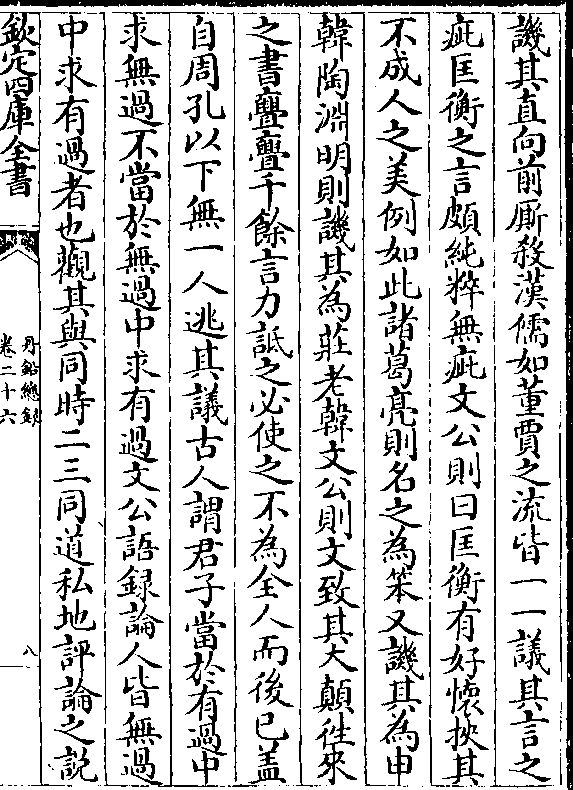 譏其直向前厮殺漢儒如董賈之流皆一一議其言之
疵匡衡之言頗純粹無疵文公則曰匡衡有好懷挾其
不成人之美例如此諸葛亮則名之為笨又譏其為申
韓陶淵明則譏其為莊老韓文公則文致其大顛徃來
之書亹亹千餘言力詆之必使之不為全人而後已盖
自周孔以下無一人逃其議古人謂君子當於有過中
求無過不當於無過中求有過文公語録論人皆無過
中求有過者也觀其與同時二三同道私地評論之説
欽定四庫全書
丹鉛總録
卷二十六
八